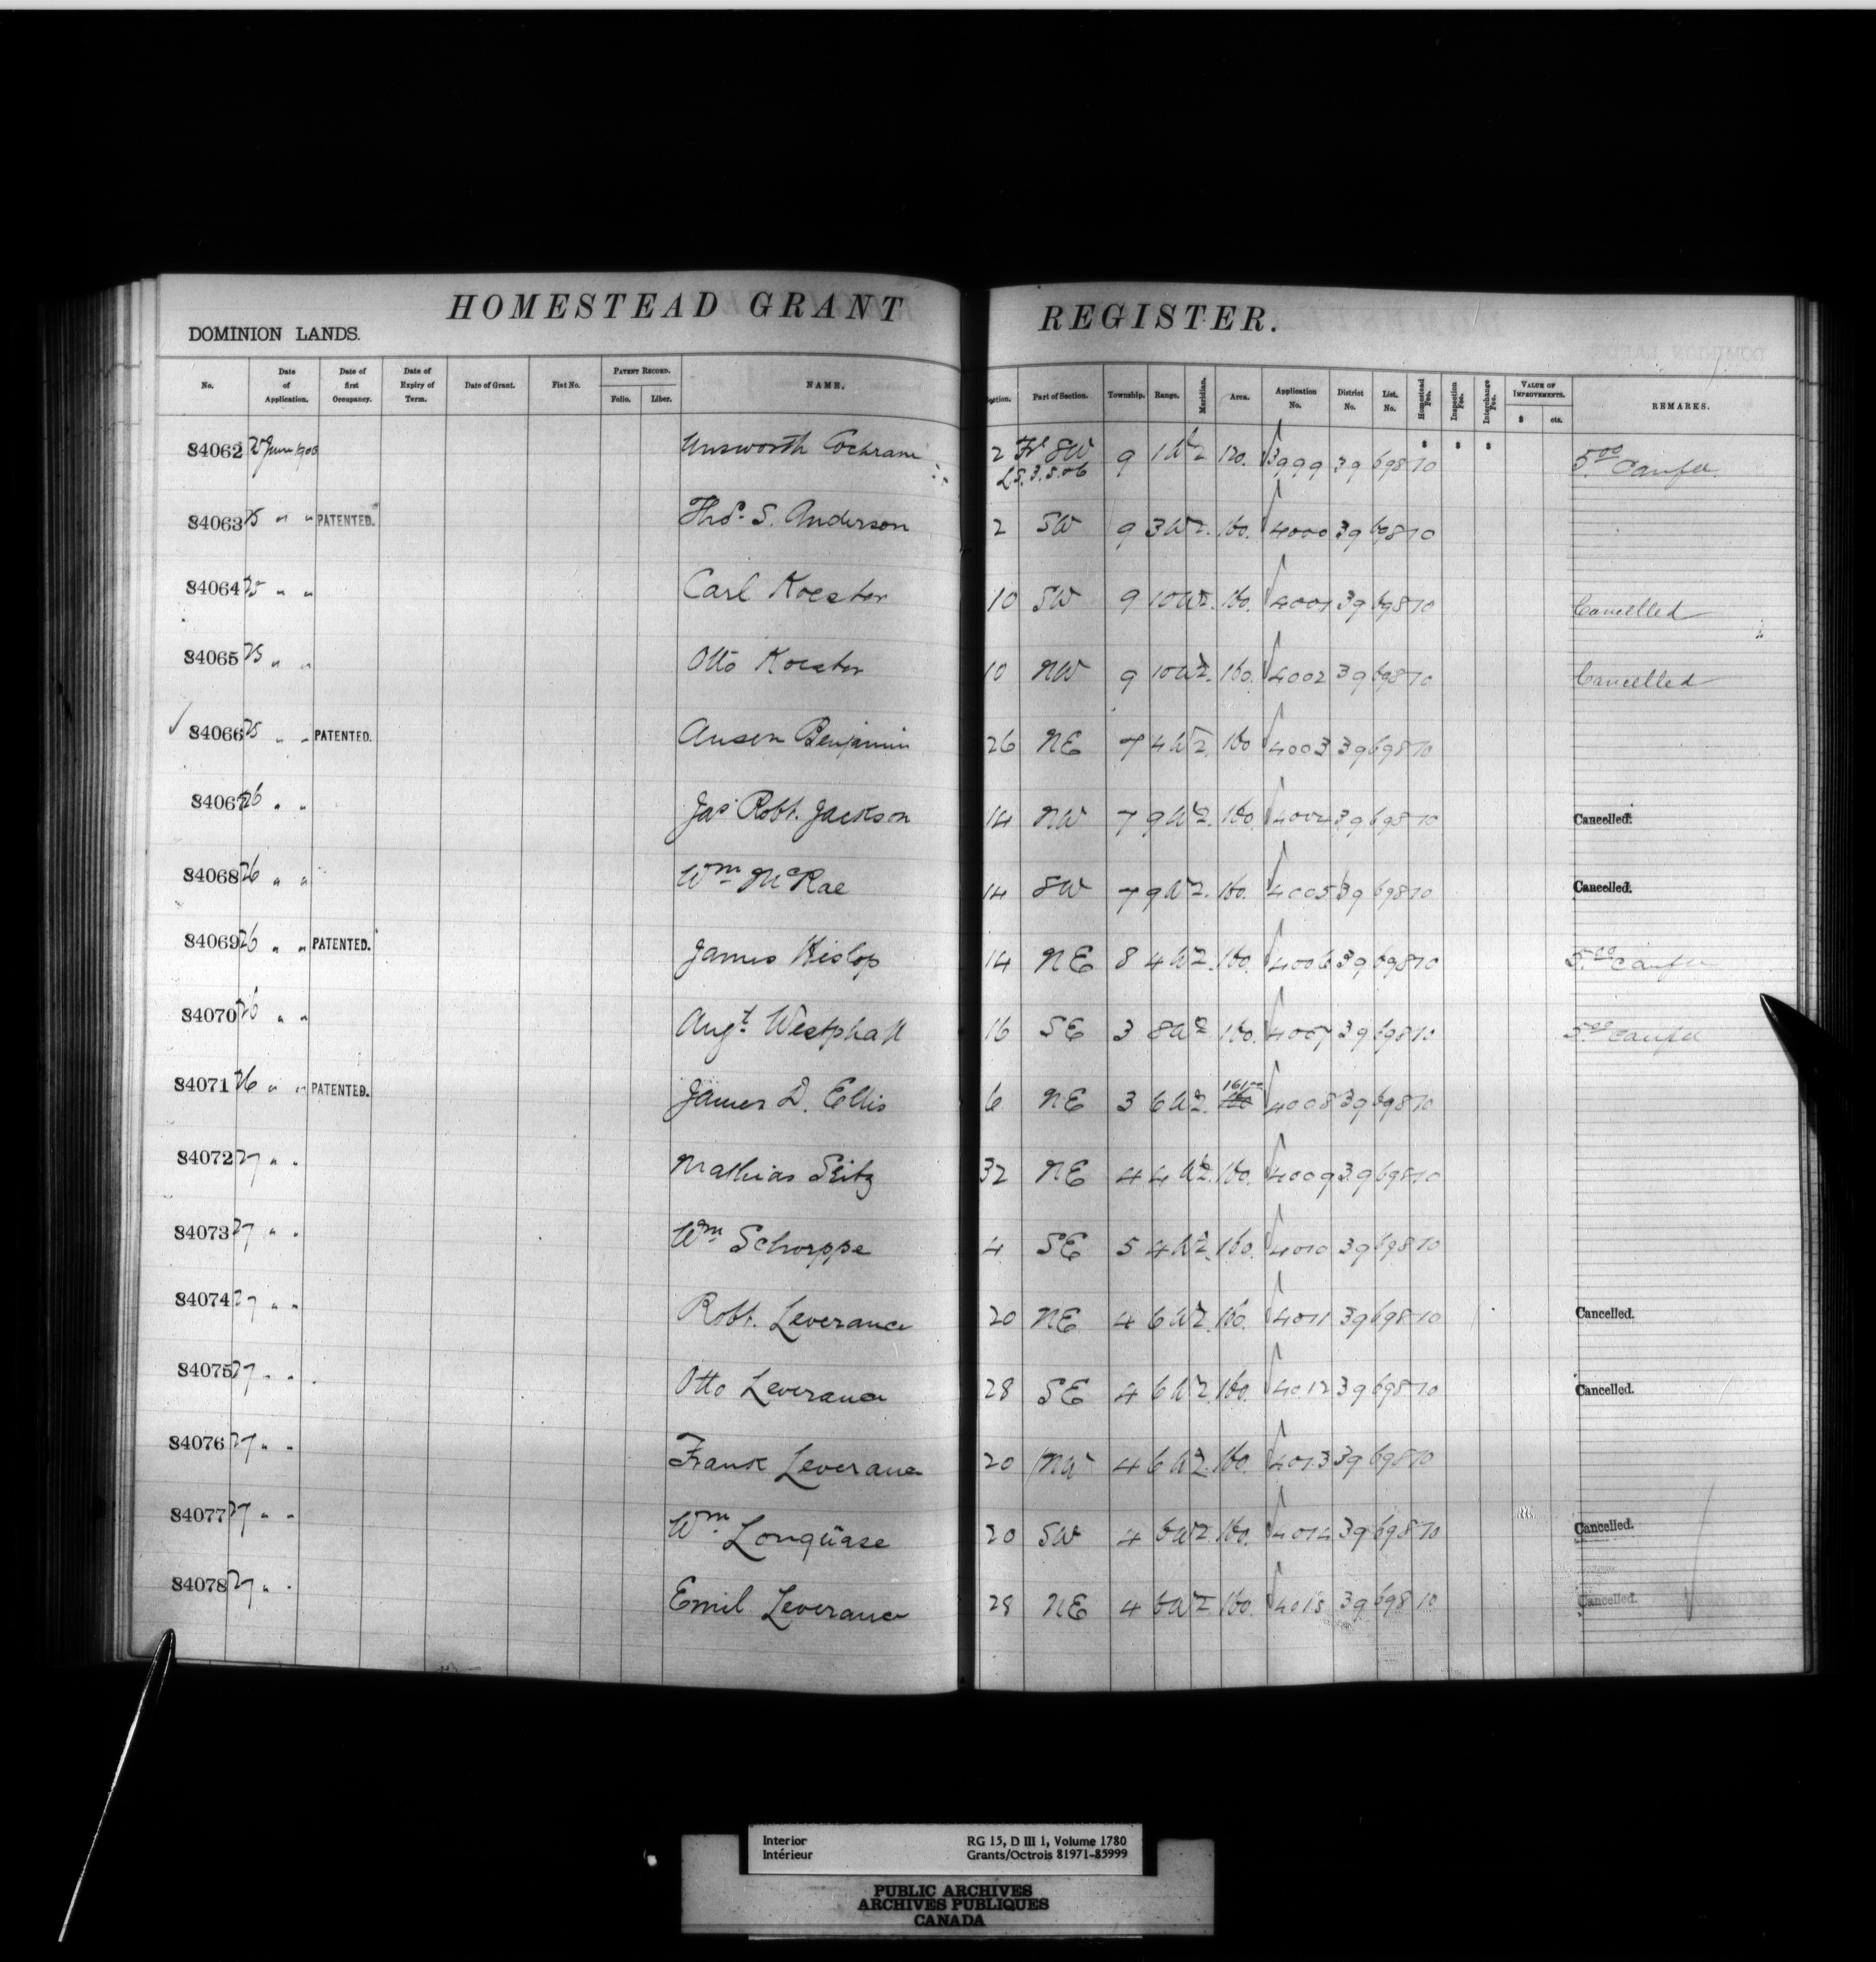 HOMESTEAD GRANT REGISTER.
DOMINION LANDS.
No. Date of Application. Date of first Occupancy. Date of Expiry of Term. Date of Grant. Fiat No. PATENT RECORD. Folio. Liber. NAME. Section. Part of Section. Township. Range. Meridian. Area. Application No. District No. List. No. Homestead Fee. Inspection Fee. Interchange Fee. VALUE OF IMPROVEMENTS. $ cts. REMARKS.
$ $ $
84062 25 June 1900 Unsworth Cochrane 2 Frl SW 9 1 W 2 120. 3999 39 698 10 5.00
L.S. 3.5.&6
84063 25 " " PATENTED. Thos. S. Anderson 2 SW 9 3 W 2. 160. 4000 39 698 10
84064 25 " " Carl Koester 10 SW 9 10 W 2. 160. 4001 39 698 10 Cancelled
84065 25 " " Otto Koester 10 NW 9 10 W 2. 160. 4002 39 698 10 Cancelled
84066 25 " " PATENTED. Anson Benjamin 26 NE 7 4 W 2 160 4003 39 698 10
84067 26 " " Jas Robt. Jackson 14 NW 7 9 W 2. 160. 4004 39 698 10 Cancelled.
84068 26 " " Wm McRae 14 SW 7 9 W 2. 160. 4005 39 698 10 Cancelled.
84069 26 " " PATENTED. James Hislop 14 NE 8 4 W 2. 160. 4006 39 698 10 5.00
84070 26 " " Augt. Westphall 16 SE 3 8 W 2 160. 4007 39 698 10 5.00
84071 26 " " PATENTED. James D. Ellis 6 NE 3 6 W 2. 161.00 160 4008 39 698 10
84072 27 " " Mathias Seitz 32 NE 4 4 W 2. 160. 4009 39 698 10
84073 27 " " Wm Schorppe 4 SE 5 4 W 2. 160. 4010 39 698 10
84074 27 " " Robt. Leverance 20 NE 4 6 W 2. 160. 4011 39 698 10 Cancelled.
84075 27 " " Otto Leverance 28 SE 4 6 W 2. 160. 4012 39 698 10 Cancelled.
84076 27 " " Frank Leverance 20 NW 4 6 W 2. 160. 4013 39 698 10
84077 27 " " Wm 20 SW 4 6 W 2. 160. 4014 39 698 10 Cancelled.
84078 27 " " Emil Leverance 28 NE 4 6 W 2 160. 4015 39 698 10 Cancelled.
Interior RG 15, D III 1, Volume 1780
Intérieur Grants/Octrois 81971-85999
PUBLIC ARCHIVES
ARCHIVES PUBLIQUES
CANADA